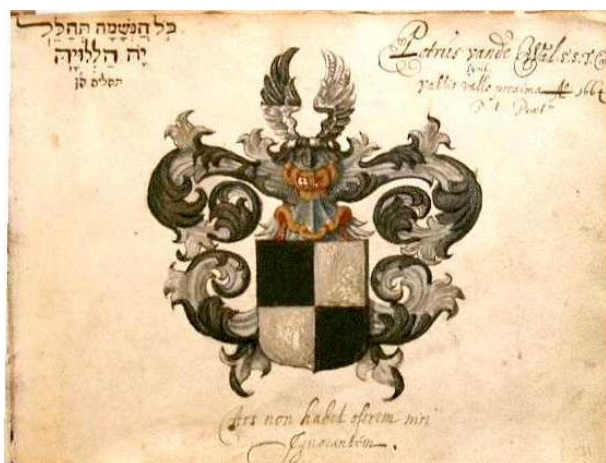 כֹּל הַנְּשָׁמָה תְּהַלֵּל
יָהּ הַלְלוּיָהּ
תהלים קן
Petrus vande Wal. S. S. T.
Symb:
Vallis valle proxima Ao 1664
Ars non habet osorem nisi
Ignorantem.